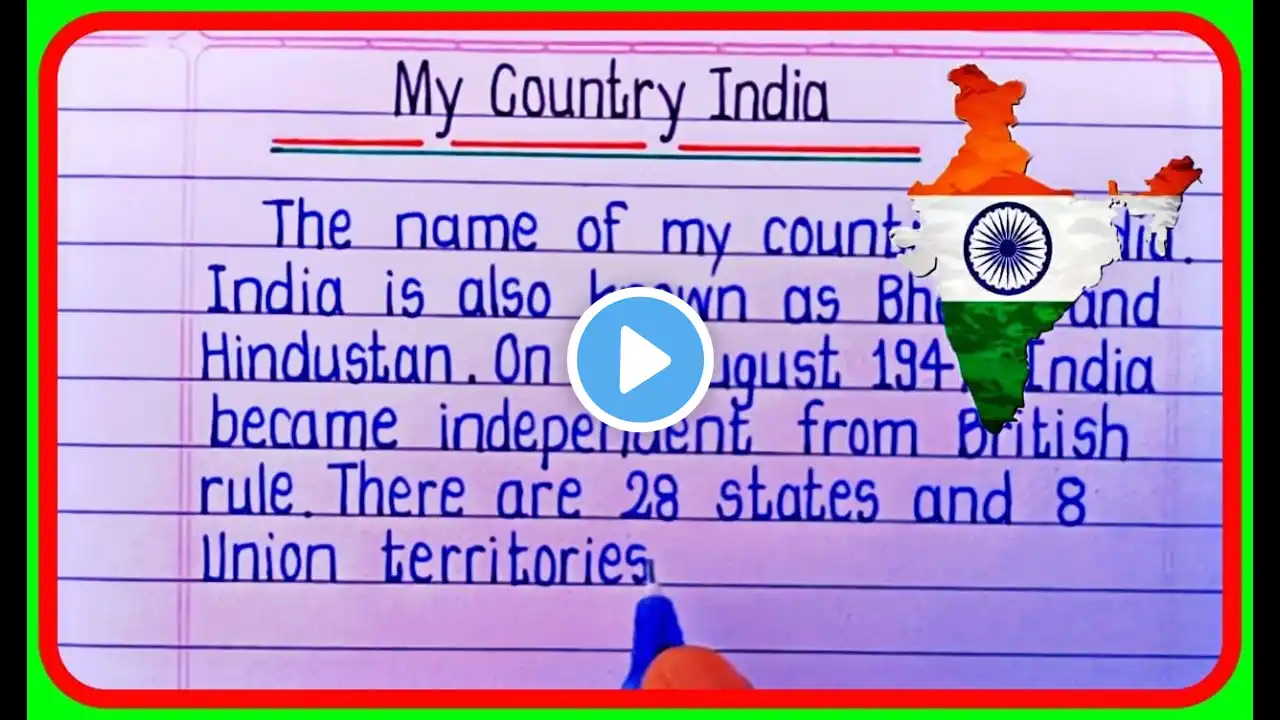 My Country India
The name of my
India is also as and
Hindustan. On India
became independent from British
rule. There are 28 states and 8
Union territories